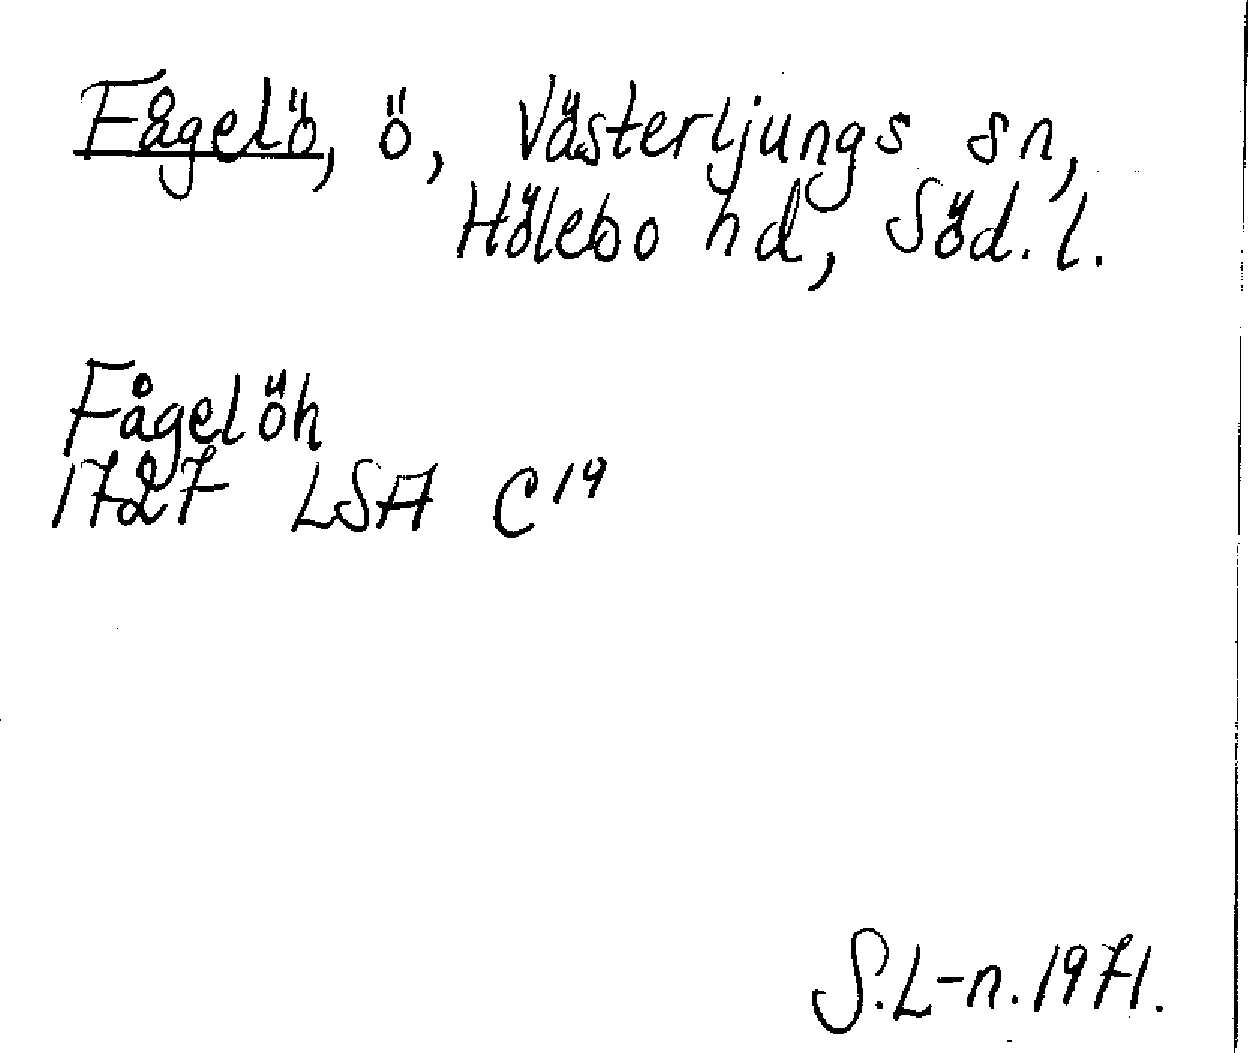 Fågelö, ö, Västerljungs sn,
Hölebo hd, Söd. l.
Fågelöh
1727 LSA C19
S.L-n. 1971.